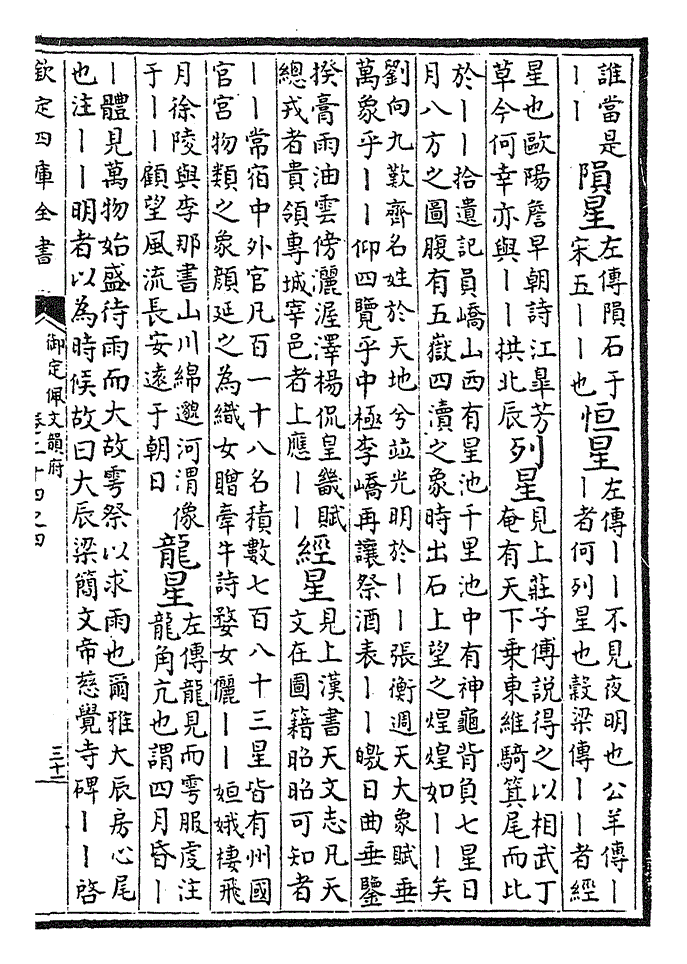 誰當是丨丨 隕星 左傳隕石于宋五丨丨也 恒星 左傳丨丨不見夜明也公羊傳丨丨者何列星也榖梁傳丨丨者經
星也歐陽詹早朝詩江臯芳草今何幸亦與丨丨拱北辰 列星 見上莊子傅說得之以相武丁奄有天下乗東維騎箕尾而比
於丨丨拾遺記員嶠山西有星池千里池中有神龜背負七星日月八方之圖腹有五嶽四瀆之象時出石上望之煌煌如丨丨矣
劉向九歎齊名姓於天地兮竝光明於丨丨張衡週天大象賦垂萬象乎丨丨仰四覽乎中極李嶠再讓祭酒表丨丨皦日曲垂鑒
揆膏雨油雲傍灑渥澤楊侃皇畿賦總戎者貴領專城宰邑者上應丨丨 經星 見上漢書天文志凡天文在圖籍昭昭可知者
丨丨常宿中外官凡百一十八名積數七百八十三星皆有州國官宫物類之象顔延之為織女贈牽牛詩婺女儷丨丨姮娥棲飛
月徐陵與李那書山川緜邈河渭像于丨丨顧望風流長安遠于朝日 龍星 左傳龍見而雩服虔注龍角亢也謂四月昏丨
丨體見萬物始盛待雨而大故雩祭以求雨也爾雅大辰房心尾也注丨丨明者以為時候故曰大辰梁簡文帝慈覺寺碑丨丨啓
欽定四庫全書
御定佩文韻府
卷二十四之四
三十二